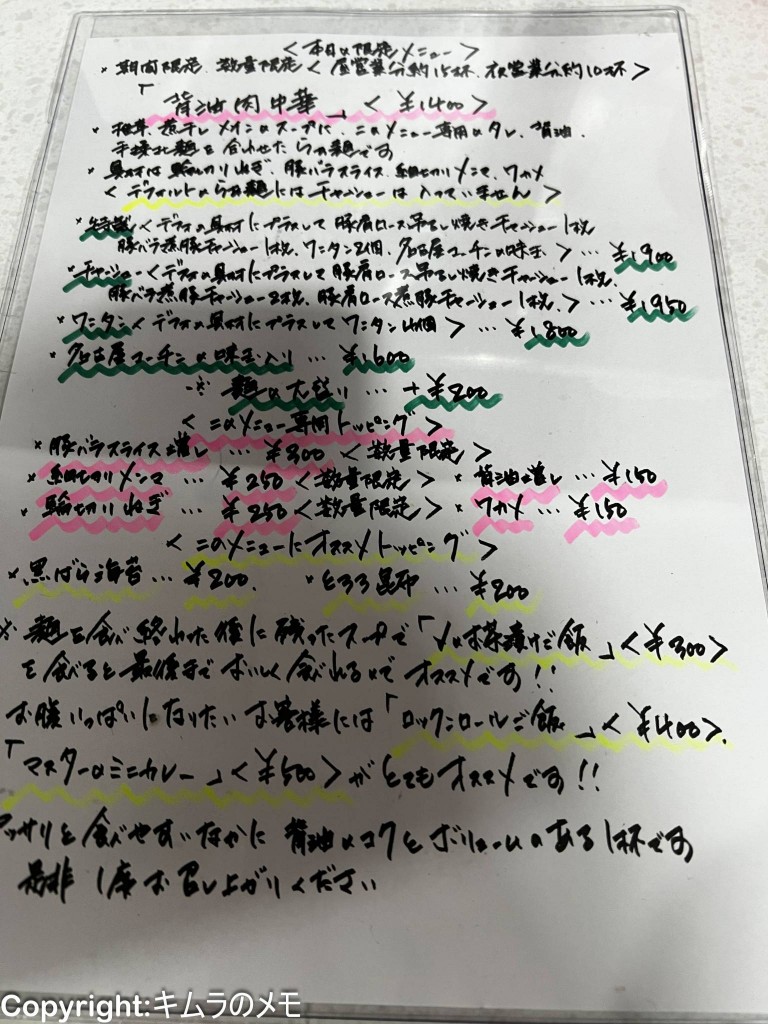 ＜本日の限定メニュー＞
* 期間限定、数量限定＜昼営業分約15杯、夜営業分約10杯＞
「背油肉中華」＜¥1400＞
* 煮干しメインのスープに、このメニュー専用のタレ、背油、
手揉み麺を合わせたらぁ麺です
* 具材は輪切りねぎ、豚バラスライス、細切りメンマ、ワカメ
＜デフォルトのらぁ麺にはチャーシューは入っていません＞
* 特製＜デフォの具材にプラスして豚肩ロース吊るし焼きチャーシュー1枚、
豚バラ煮豚チャーシュー1枚、ワンタン2個、名古屋コーチンの味玉＞…¥1900
* チャーシュー＜デフォの具材にプラスして豚肩ロース吊るし焼きチャーシュー1枚、
豚バラ煮豚チャーシュー2枚、豚肩ロース煮豚チャーシュー1枚、＞…¥1950
* ワンタン＜デフォの具材にプラスしてワンタン4個＞…¥1800
* 名古屋コーチンの味玉入り…¥1600
※ 麺の大盛り…+¥200
＜このメニュー専用トッピング＞
* 豚バラスライス増し…¥300＜数量限定＞
* 細切りメンマ…¥250＜数量限定＞ * 背油増し…¥150
* 輪切りねぎ…¥250＜数量限定＞ * ワカメ…¥150
＜このメニューにオススメトッピング＞
* 黒ばら海苔…¥200 * とろろ昆布…¥200
※ 麺を食べ終わった後に残ったスープで「〆のお茶漬けご飯」＜¥300＞
を食べると最後までおいしく食べれるのでオススメです!!
お腹いっぱいになりたいお客様には「ロックンロールご飯」＜¥400＞、
「マスターのミニカレー」＜¥500＞がとてもオススメです!!
アッサリと食べやすいなかに背油のコクとボリュームのある1杯です
是非1度お召し上がりください
Copyright:キムラのメモ